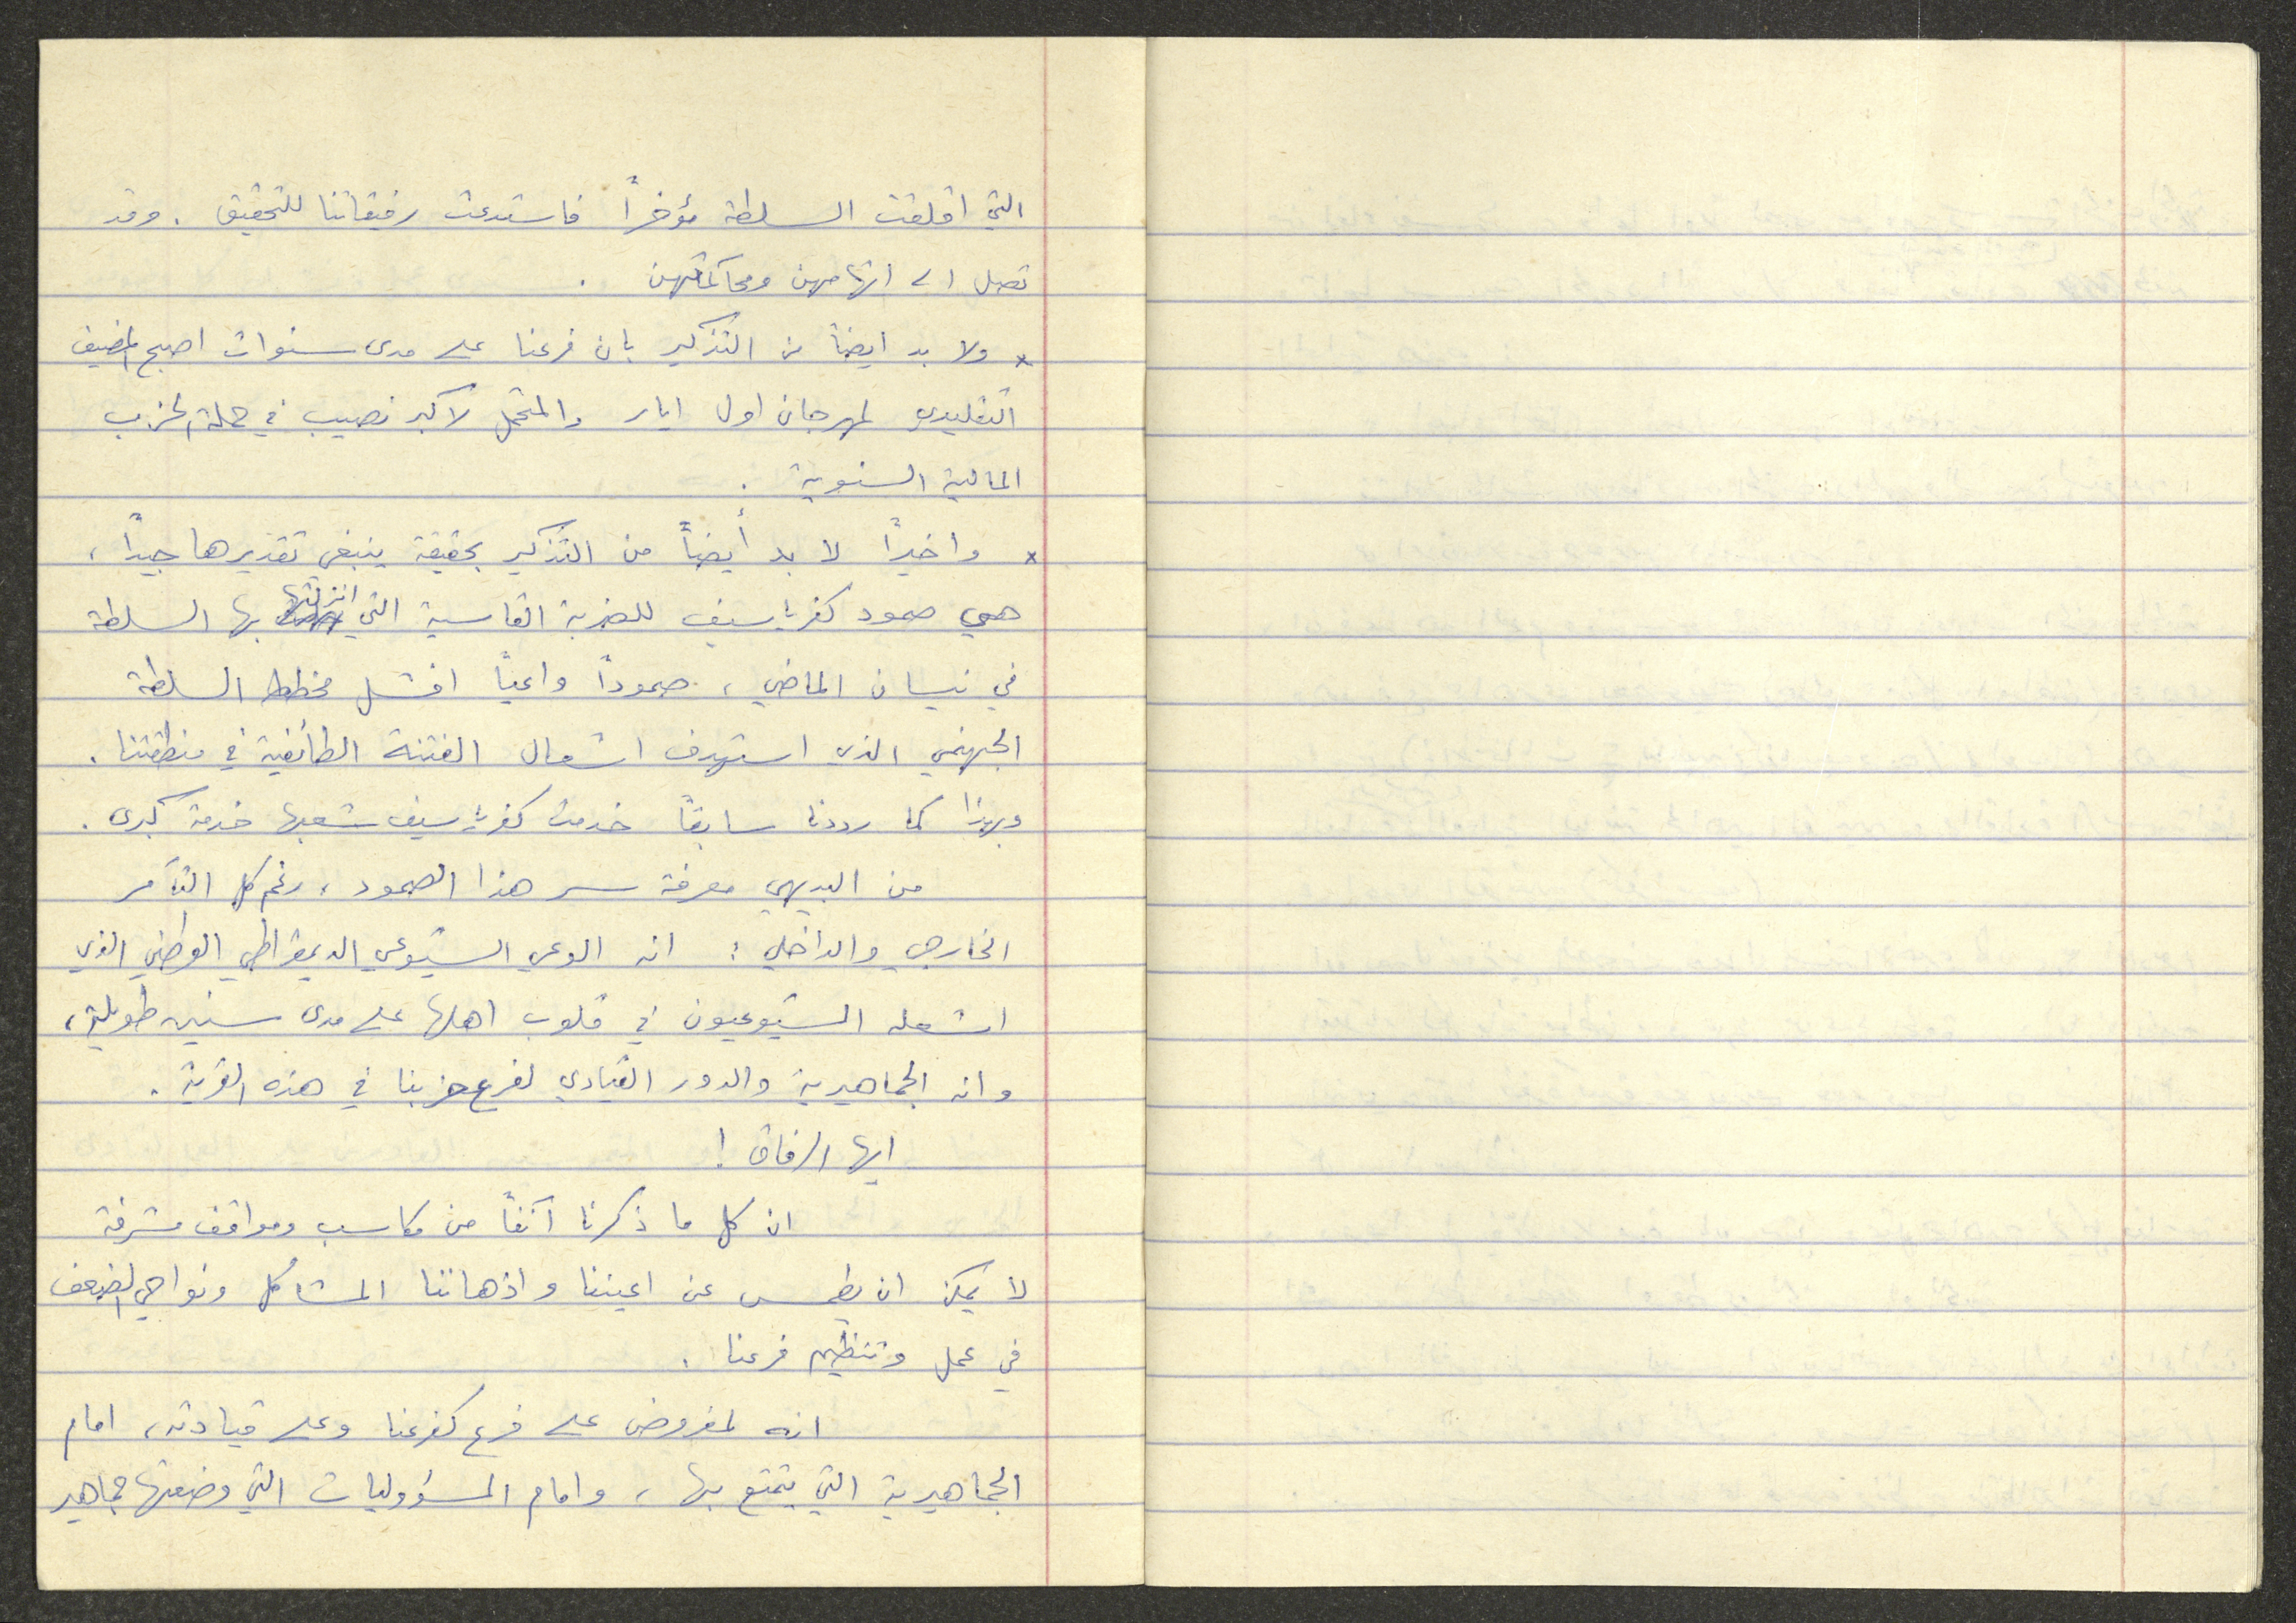 التي اقلقت السلطة مؤخراً فاستدعت رفيقاتنا للتحقيق . وقد
تصل الى اتهامهن ومحاكمتهن .
* ولا بد ايضاً من التذكير بان فرعنا على مدى سنوات اصبح المضيف
التقليدي لمهرجان اول ايار والمتحمل لاكبر نصيب في حملة الحزب
المالية السنوية .
* واخيراً لا بد أيضاً من التذكير بحقيقة ينبغي تقديرها جيداً ،
هي صمود كفرياسيف للضربة القاسية التي انزلتها بها السلطة
في نيسان الماضي ، صموداً واعياً افشل مخطط السلطة
الجهنمي الذي استهدف اشعال الفتنة الطائفية في منطقتنا .
وبهذا كما رددنا سابقاً خدمت كفرياسيف شعبها خدمة كبرى .
من البديهي معرفة سر هذا الصمود ، رغم كل التآمر
الخارجي والداخلي : انه الوعي الشيوعي الديمقراطي الوطني الذي
اشعله الشيوعيون في قلوب اهلها على مدى سنين طويلة ،
وانه الجماهيرية والدور القيادي لفرع حزبنا في هذه القرية .
ايها الرفاق !
ان كل ما ذكرنا آنفاً من مكاسب ومواقف مشرفة
لا يمكن ان يطمس عن اعيننا واذهاننا المشاكل ونواحي الضعف
في عمل وتنظيم فرعنا .
انه لمفروض على فرع كفرعنا وعلى قيادته ، امام
الجماهيرية التي يتمتع بها ، وامام المسؤوليات التي وضعتها جماهير